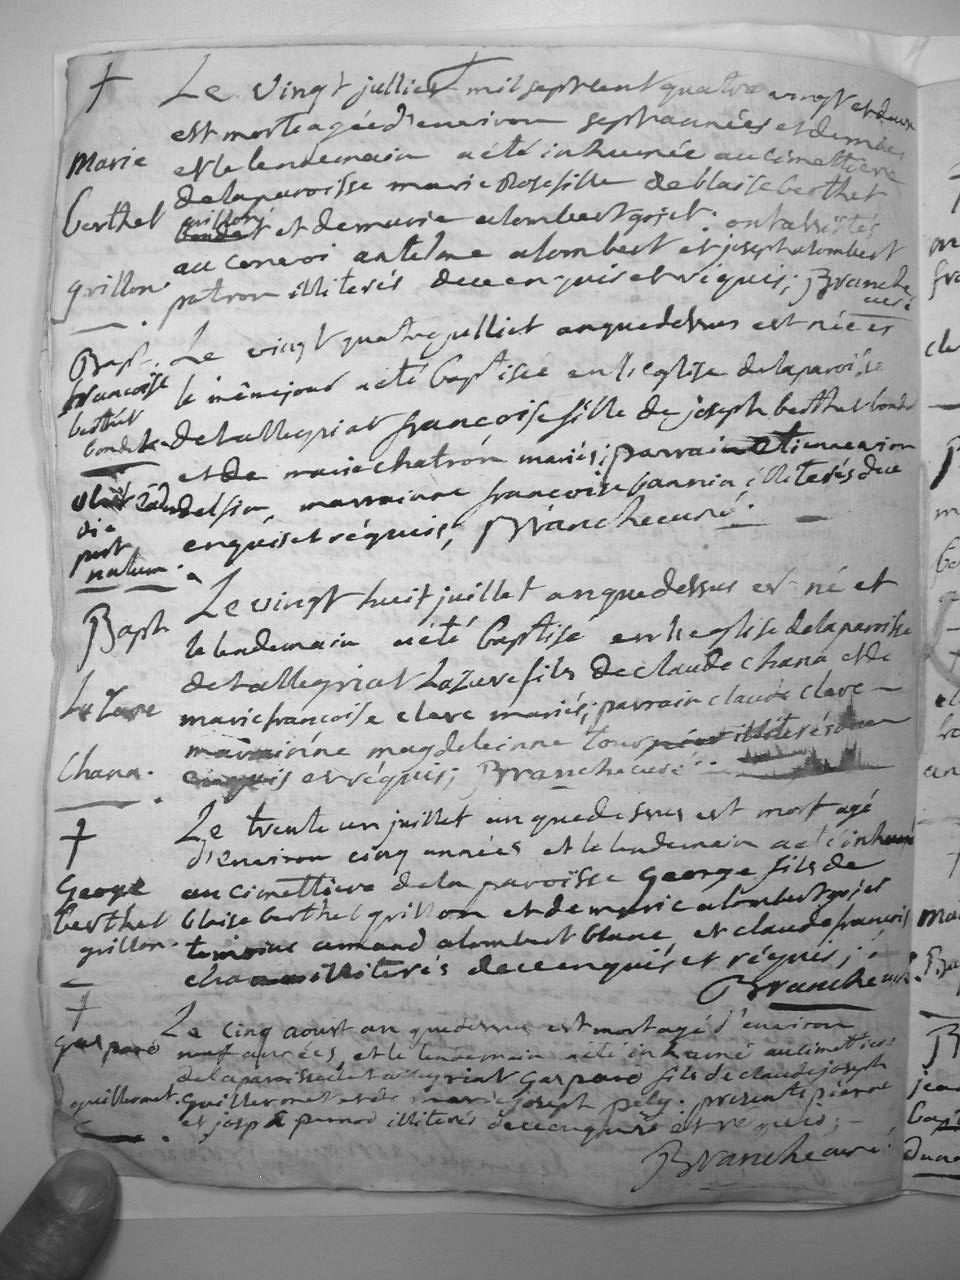 †
Marie
berthet
grillon
Le vingt julliet mil sept cent quatre vingt et deux
est morte agée d'environ sept années et demie
et le lendemain a été inhumée au cimettiere
de la paroisse marie Rose fille de blaise berthet
grillon et de marie alombert gojet. ont assistés
au convoi antelme alombert et joseph alombert
patron illiterés de ce enquis et réquis; Branche
curé
Bapt.
francoise
berthet
bondet
obiit
die
post
natum.
Le vingt quatre julliet an que dessus est née et
le même jour a été baptisée en l'eglise de la paroisse
de tallegriat francoise fille de joseph berthet bondet
et de marie chatron mariés; parrain etienne
marrainne francoise illiterés de ce
enquis et réquis; Branche curé.
Bapt
Lazare
Chana.
Le vingt huit juillet an que dessus est né et
le lendemain a été baptise en l'eglise de la paroisse
de tallegriat Lazare fils de claude chana et de
marie francoise clerc mariés; parrain claude clerc
marrainne magdeleinne illiterés
enquis et réquis; Branche curé.
†
George
berthet
grillon.
Le trente un juillet an que dessus est mort agé
d'environ cinq années et le lendemain a été inhumé
au cimettiere de la paroisse George fils de
blaise berthet grillon et de marie alombert gojet
temoins amand alombert blanc et claude francois
chana illiterés de ce enquis et réquis;
Branche curé.
†
Gaspard
guillermet.
Le cinq aoust an que dessus est mort agé d'environ
neuf années, et le lendemain a été inhumé au cimettiere
de la paroisse de tallegriat Gaspard fils de claude joseph
guillermet et de marie joseph pely. presents pierre
et josph illiterés de ce enquis et requis;
Branche curé.